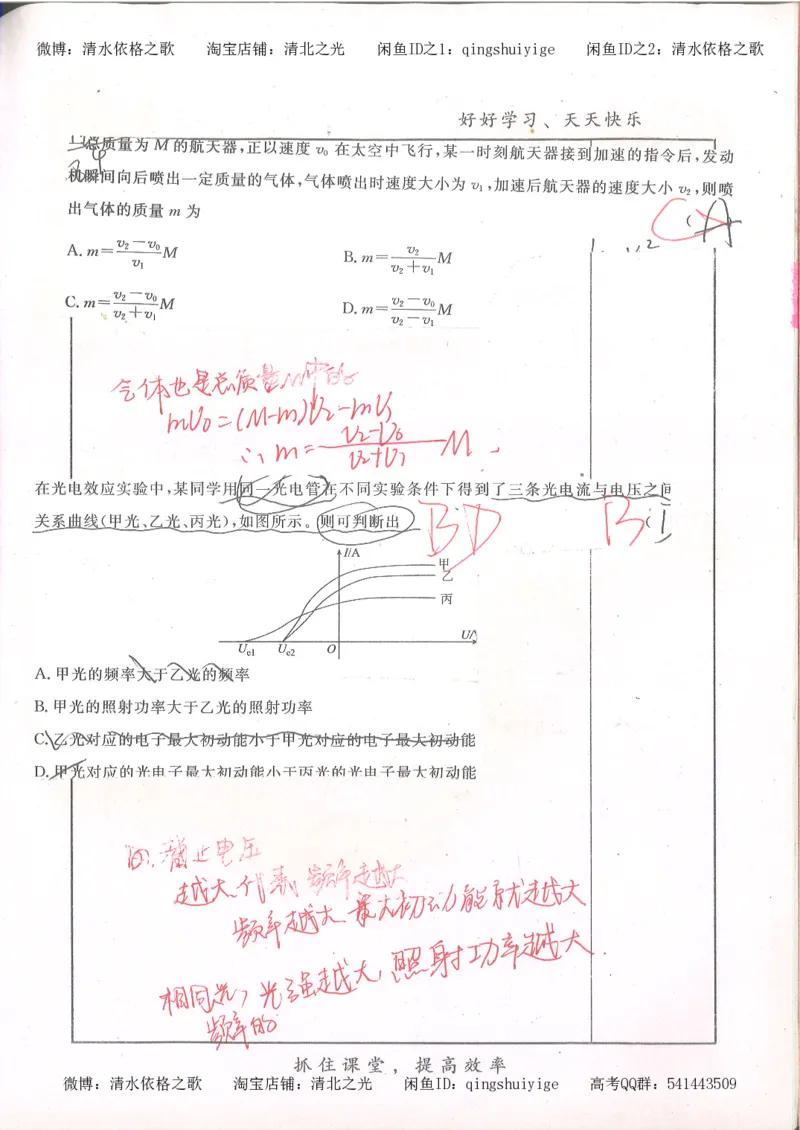 微博：清水依格之歌 淘宝店铺：清北之光 闲鱼ID之1：qingshuiyige 闲鱼ID之2：清水依格之歌
好好学习、天天快乐
总质量为 M 的航天器,正以速度 v₀ 在太空中飞行,某一时刻航天器接到加速的指令后,发动
机瞬间向后喷出一定质量的气体,气体喷出时速度大小为 v₁,加速后航天器的速度大小 v₂,则喷
出气体的质量 m 为
C A
A. m=(v₂-v₀)/v₁ M B. m=v₂/(v₂+v₁) M
C. m=(v₂-v₀)/(v₂+v₁) M D. m=(v₂-v₀)/(v₂-v₁) M
气体也是总质量M中的
mv₀=(M-m)v₂-mv₁
∴m=(v₂-v₀)/(v₂+v₁) M.
在光电效应实验中,某同学用同一光电管在不同实验条件下得到了三条光电流与电压之间
关系曲线(甲光、乙光、丙光),如图所示。则可判断出
BD B
I/A
甲
乙
丙
Uc1 Uc2 O U/V
A. 甲光的频率大于乙光的频率
B. 甲光的照射功率大于乙光的照射功率
C. 乙光对应的电子最大初动能小于甲光对应的电子最大初动能
D. 甲光对应的光电子最大初动能小于丙光的光电子最大初动能
遏止电压
越大,代表,频率越大
频率越大,最大初动能就越大
相同光,光强越大,照射功率越大.
频率的
抓住课堂，提高效率
微博：清水依格之歌 淘宝店铺：清北之光 闲鱼ID：qingshuiyige 高考QQ群：541443509